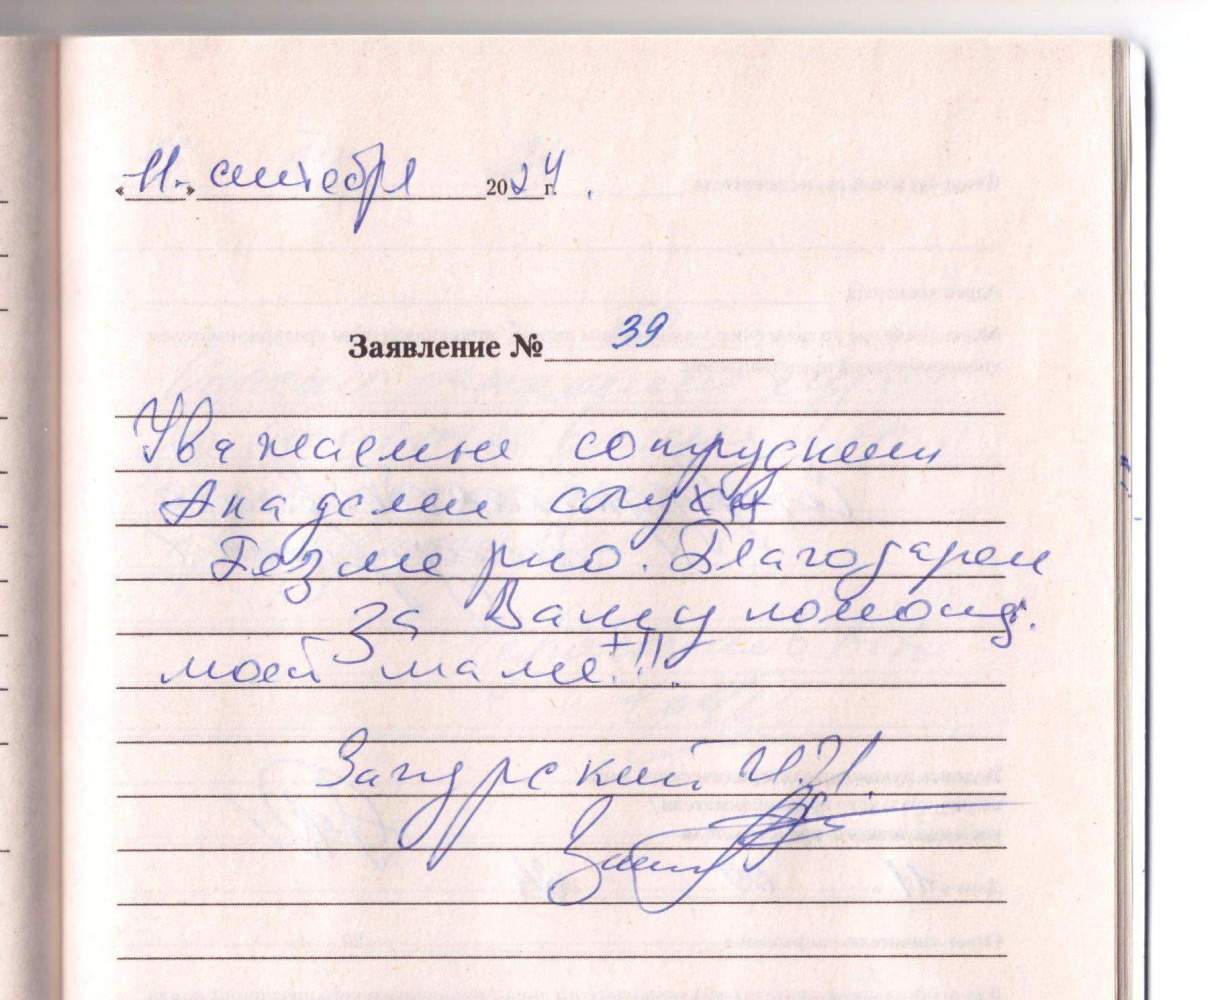 «11» сентября 2024 г.
Заявление № 39
Уважаемые сотрудники
Академии слуха
Безмерно. Благодарен
За Вашу помощь.
моей маме!!!